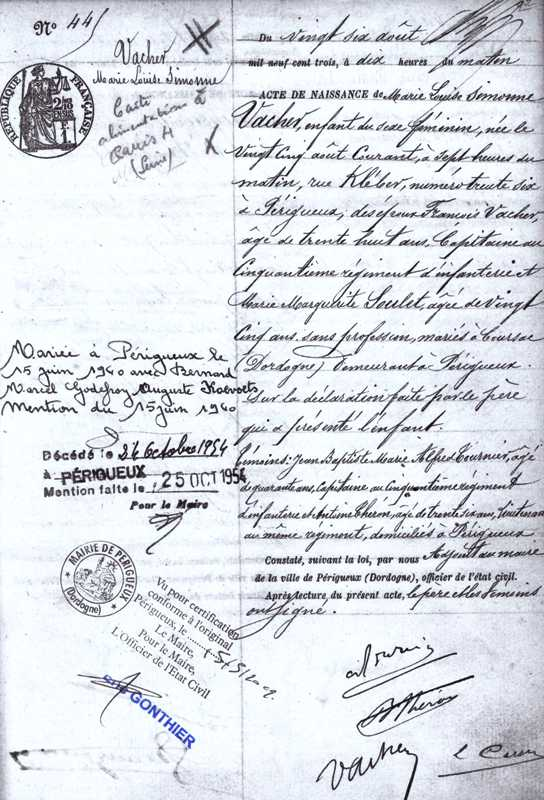 No 445
Vacher
Marie Louise Simonne
Carte
alimentation à
Paris 4
(Seine)
RÉPUBLIQUE FRANÇAISE
Mariée à Périgueux le
15 juin 1940 avec Bernard
Marcel Godefroy Auguste
Mention du 15 juin 1940
Décédé le 24 Octobre 1954
à PÉRIGUEUX
Mention faite le, 25 OCT 1954
Pour le Maire
MAIRIE DE PÉRIGUEUX
(Dordogne)
Vu pour certification
conforme à l'original
Périgueux, le
Le Maire,
Pour le Maire,
L'Officier de l'Etat Civil
GONTHIER
Du vingt six août
mil neuf cent trois, à dix heures du matin
ACTE DE NAISSANCE de Marie Louise Simonne
Vacher, enfant du sexe féminin, née le
vingt cinq août courant, à sept heures du
matin, rue Kléber, numéro trente six
à Périgueux, des époux François Vacher
âgé de trente huit ans, Capitaine au
cinquantième régiment d'infanterie et
Marie Marguerite Soulet, âgée de vingt
cinq ans, sans profession, mariés à Coursac
(Dordogne) demeurant à Périgueux.
Sur la déclaration faite par le père
qui a présenté l'enfant.
Témoins: Jean Baptiste Marie Alfred Tournier, âgé
de quarante ans, Capitaine au cinquantième régiment
d'infanterie et Antoine Théron, âgé de trente six ans, lieutenant
au même régiment, domiciliés à Périgueux
Constaté, suivant la loi, par nous Adjoint au maire
de la ville de Périgueux (Dordogne), officier de l'état civil.
Après lecture du présent acte, le père et les témoins
ont signé.
Théron
Vacher